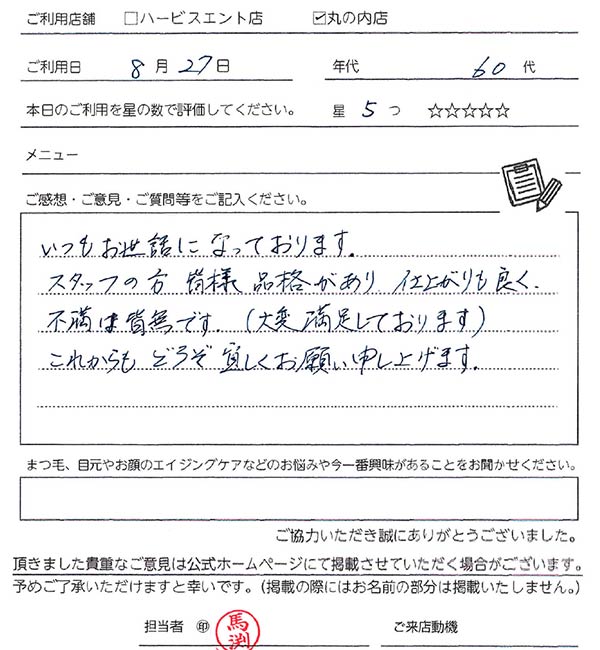 ご利用店舗 □ハービスエント店 ☑丸の内店
ご利用日 8月27日 年代 60代
本日のご利用を星の数で評価してください。 星 5 つ ☆☆☆☆☆
メニュー
ご感想・ご意見・ご質問等をご記入ください。
いつもお世話になっております。
スタッフの方 皆様 品格があり 仕上がりも良く、
不満は皆無です。(大変満足しております)
これからも どうぞ 宜しくお願い申し上げます。
まつ毛、目元やお顔のエイジングケアなどのお悩みや今一番興味があることをお聞かせください。
ご協力いただき誠にありがとうございました。
頂きました貴重なご意見は公式ホームページにて掲載させていただく場合がございます。
予めご了承いただけますと幸いです。(掲載の際にはお名前の部分は掲載いたしません。)
担当者 ㊞ 馬渕 ご来店動機